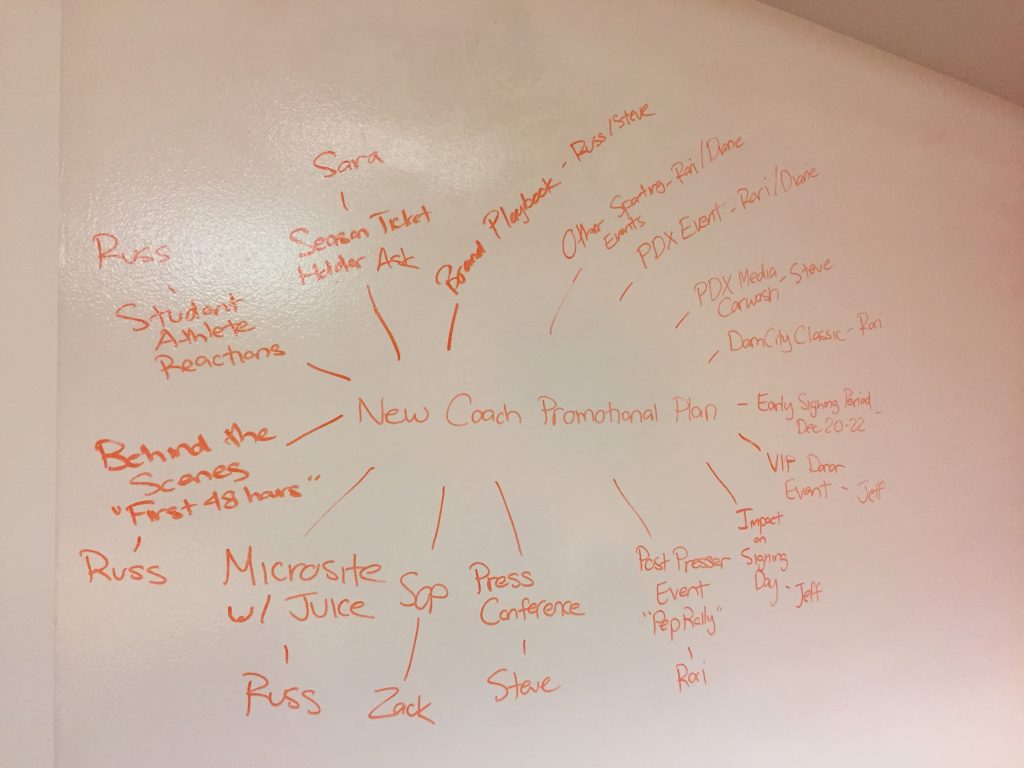 Sara
Season Ticket
Holder Ask
Brand Playbook - Russ/Steve
Other Sporting - Rori/Diane
Events
PDX Event - Rori/Diane
PDX Media - Steve
Carwash
DamCity Classic - Rori
Russ
Student
Athlete
Reactions
New Coach Promotional Plan
Early Signing Period
Dec 20-22
VIP Donor
Event - Jeff
Behind the
Scenes
"First 48 hours"
Russ
Microsite
w/ JUICE
Russ
Sop
Zack
Press
Conference
Steve
Post Presser
Event
"Pep Rally"
Rori
Impact
on
Signing
Day - Jeff